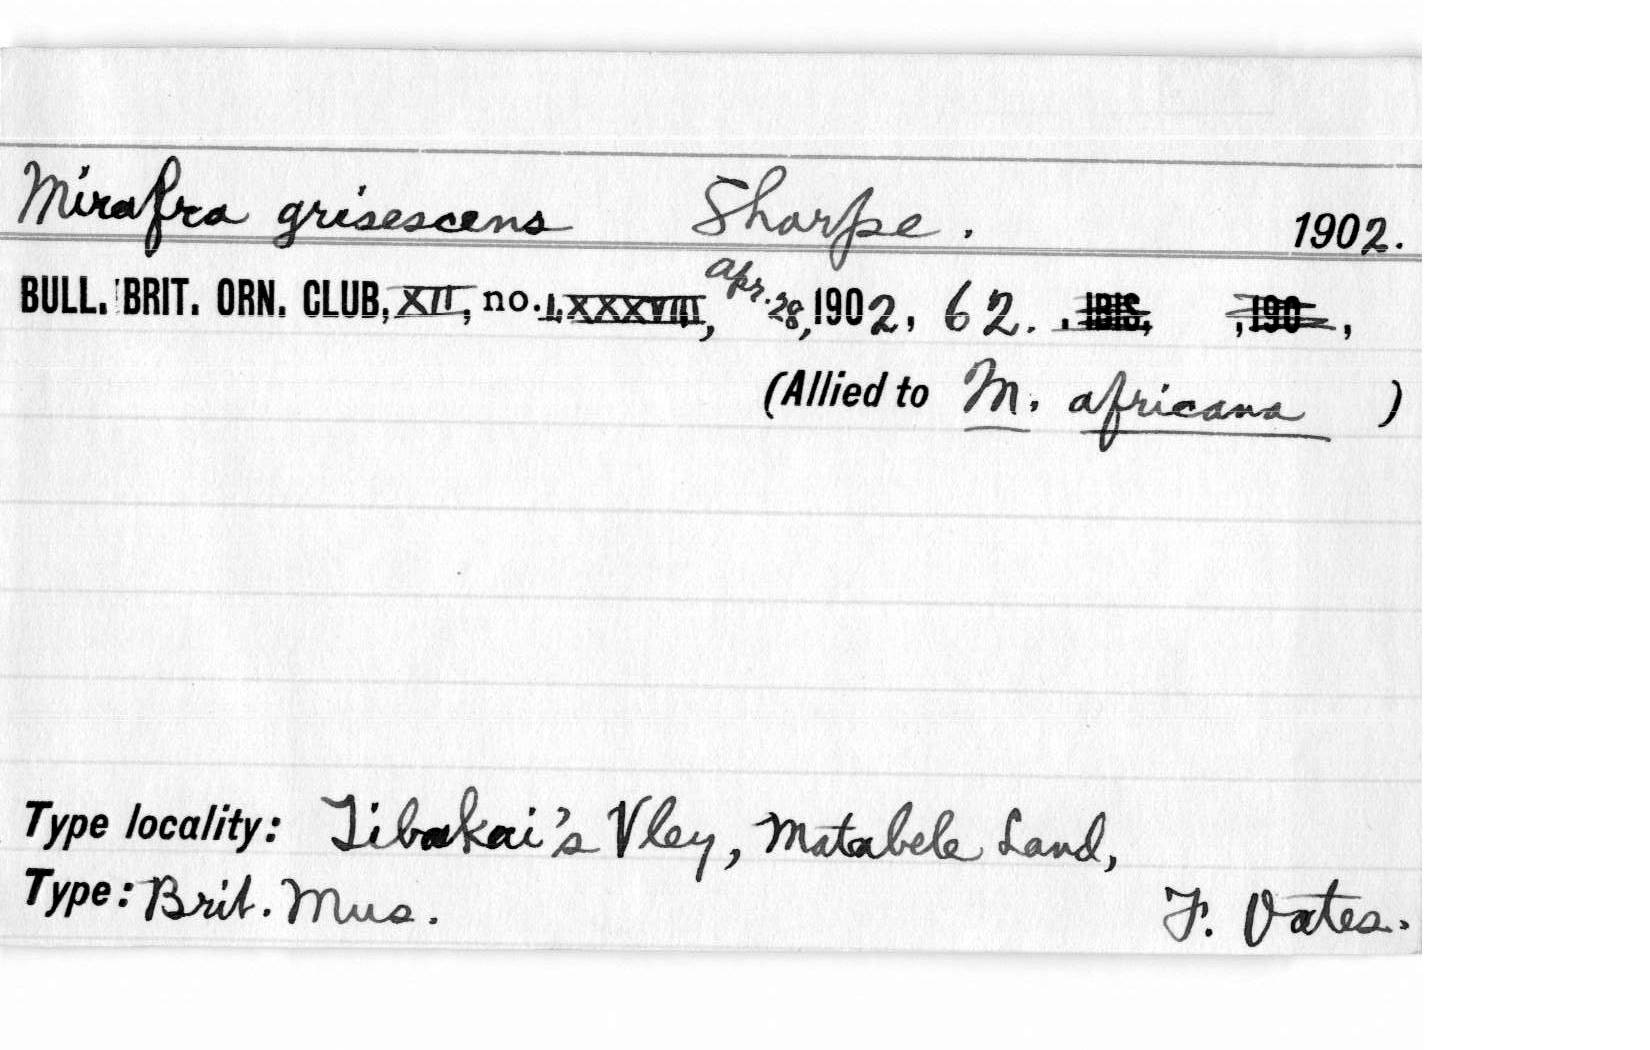 Mirafra grisescens Sharpe. 1902.
BULL. BRIT. ORN. CLUB, XII, no. LXXXVIII, Apr. 28, 1902, 62. , IBIS, ,190 ,
(Allied to M. africana )
Type locality: Jibakai's Vley, Matabele Land,
Type: Brit. Mus. F. Oates.